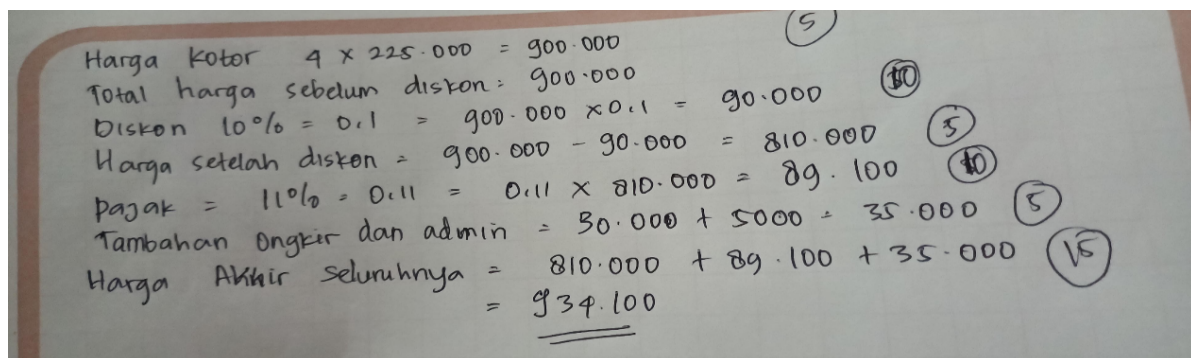 Harga Kotor 4 x 225.000 = 900.000 (5)
Total harga sebelum diskon: 900.000
Diskon 10% = 0.1 = 900.000 x 0.1 = 90.000 (10)
Harga setelah diskon = 900.000 - 90.000 = 810.000 (5)
Pajak = 11% = 0.11 = 0.11 x 810.000 = 89.100 (10)
Tambahan Ongkir dan admin = 30.000 + 5000 = 35.000 (5)
Harga Akhir seluruhnya = 810.000 + 89.100 + 35.000 (15)
= 934.100